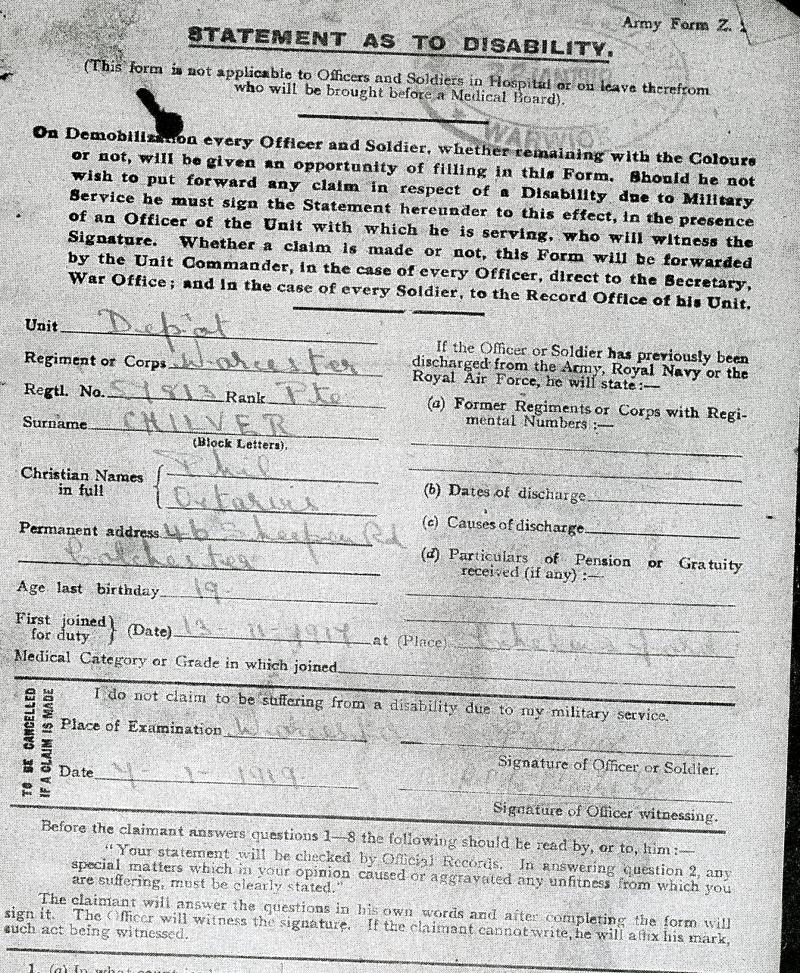 Army Form Z.
STATEMENT AS TO DISABILITY.
(This form is not applicable to Officers and Soldiers in Hospital or on leave therefrom
who will be brought before a Medical Board).
WARWIC
On Demobilization every Officer and Soldier, whether remaining with the Colours
or not, will be given an opportunity of filling in this Form. Should he not
wish to put forward any claim in respect of a Disability due to Military
Service he must sign the Statement hereunder to this effect, in the presence
of an Officer of the Unit with which he is serving, who will witness the
Signature. Whether a claim is made or not, this Form will be forwarded
by the Unit Commander, in the case of every Officer, direct to the Secretary,
War Office; and in the case of every Soldier, to the Record Office of his Unit.
Unit Depot
Regiment or Corps Worcester
Regtl. No. 57813 Rank Pte
Surname CHILVER
(Block Letters).
Christian Names in full
Phil
Octavius
Permanent address 46 Sheepen Rd
Colchester
Age last birthday 19
If the Officer or Soldier has previously been
discharged from the Army, Royal Navy or the
Royal Air Force, he will state:—
(a) Former Regiments or Corps with Regi-
mental Numbers:—
(b) Dates of discharge
(c) Causes of discharge
(d) Particulars of Pension or Gratuity
received (if any):—
First joined for duty } (Date) 13-11-1917 at (Place) Chelmsford
Medical Category or Grade in which joined
TO BE CANCELLED
IF A CLAIM IS MADE
I do not claim to be suffering from a disability due to my military service.
Place of Examination Worcester
Signature of Officer or Soldier.
Date 7-1-1919
Signature of Officer witnessing.
Before the claimant answers questions 1—8 the following should be read by, or to, him:—
"Your statement will be checked by Official Records. In answering question 2, any
special matters which in your opinion caused or aggravated any unfitness from which you
are suffering, must be clearly stated."
The claimant will answer the questions in his own words and after completing the form will
sign it. The Officer will witness the signature. If the claimant cannot write, he will affix his mark,
such act being witnessed.
1. (a) In what